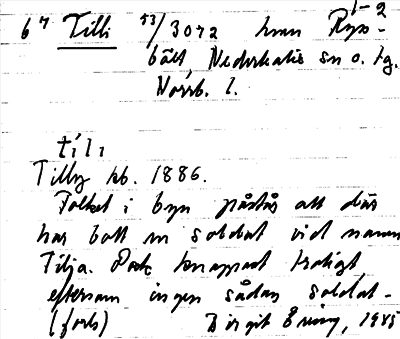 1-2
67 Tilli 53/3072 hmn Ryss-
bält, Nederkalix sn o. tg.
Norrb. l.
tíli
Tilly kb. 1886.
Folket i byn påstår att där
har bott en soldat vid namn
Tilja. Dock knappast troligt,
eftersom ingen sådan soldat-
(forts) Birgit Ering, 1945